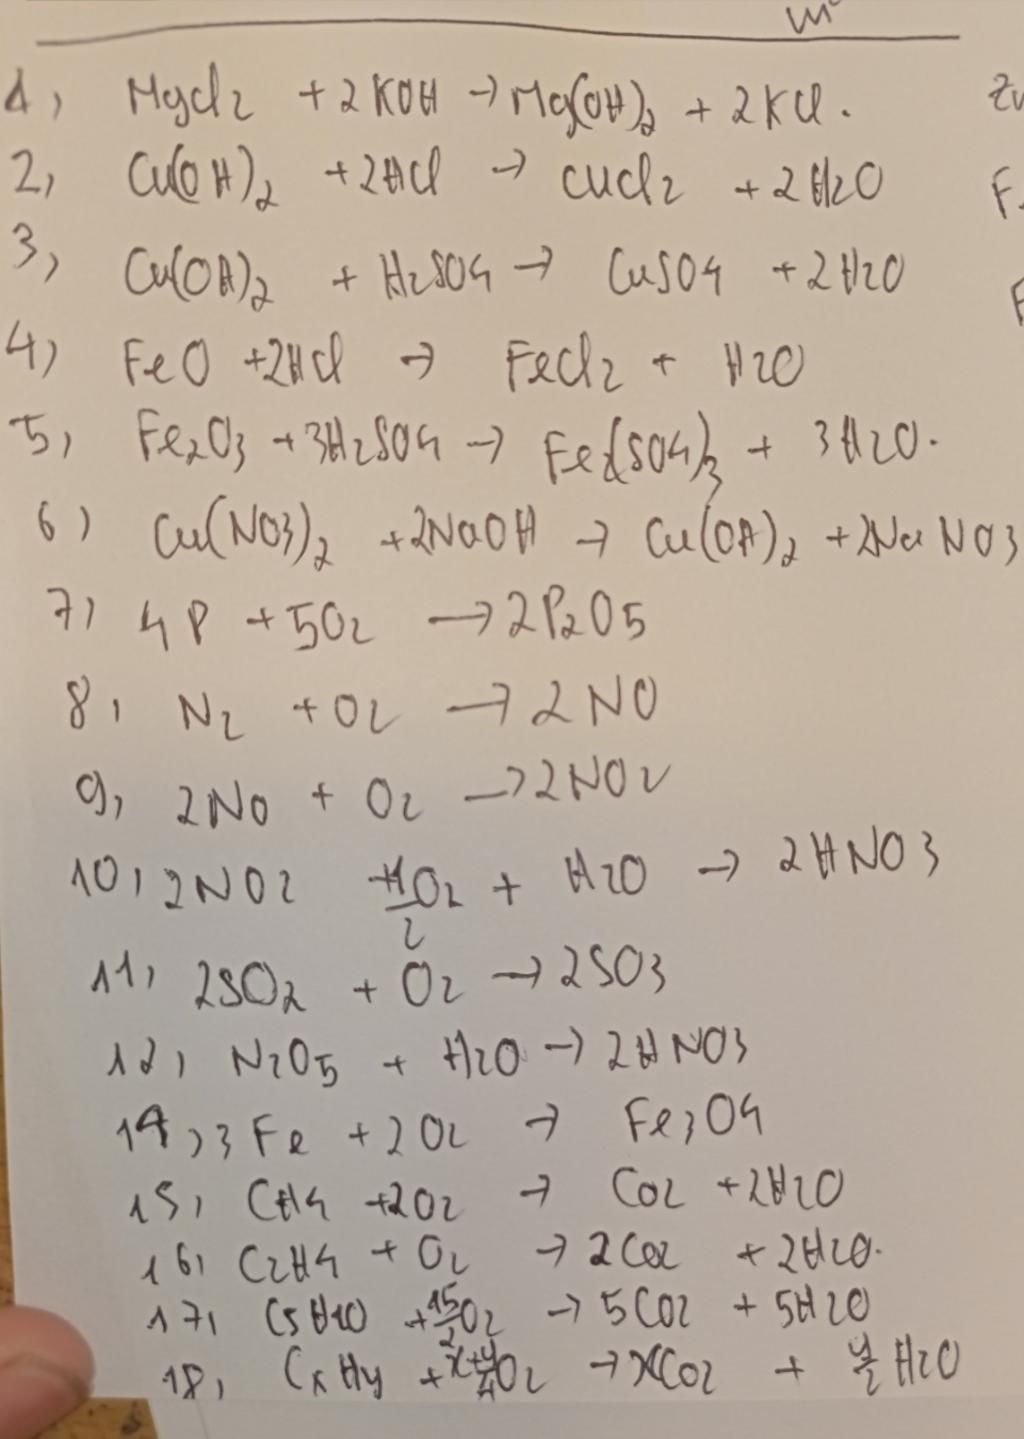 1, MgCl2 + 2KOH → Mg(OH)2 + 2KCl.
2, Cu(OH)2 + 2HCl → CuCl2 + 2H2O
3, Cu(OH)2 + H2SO4 → CuSO4 + 2H2O
4, FeO + 2HCl → FeCl2 + H2O
5, Fe2O3 + 3H2SO4 → Fe2(SO4)3 + 3H2O.
6, Cu(NO3)2 + 2NaOH → Cu(OH)2 + 2NaNO3
7, 4P + 5O2 → 2P2O5
8, N2 + O2 → 2NO
9, 2NO + O2 → 2NO2
10, 2NO2 + 1/2 O2 + H2O → 2HNO3
11, 2SO2 + O2 → 2SO3
12, N2O5 + H2O → 2HNO3
14, 3Fe + 2O2 → Fe3O4
15, CH4 + 2O2 → CO2 + 2H2O
16, C2H4 + O2 → 2CO2 + 2H2O.
17, C5H10 + 15/2 O2 → 5CO2 + 5H2O
18, CxHy + x+y/4 O2 → xCO2 + y/2 H2O